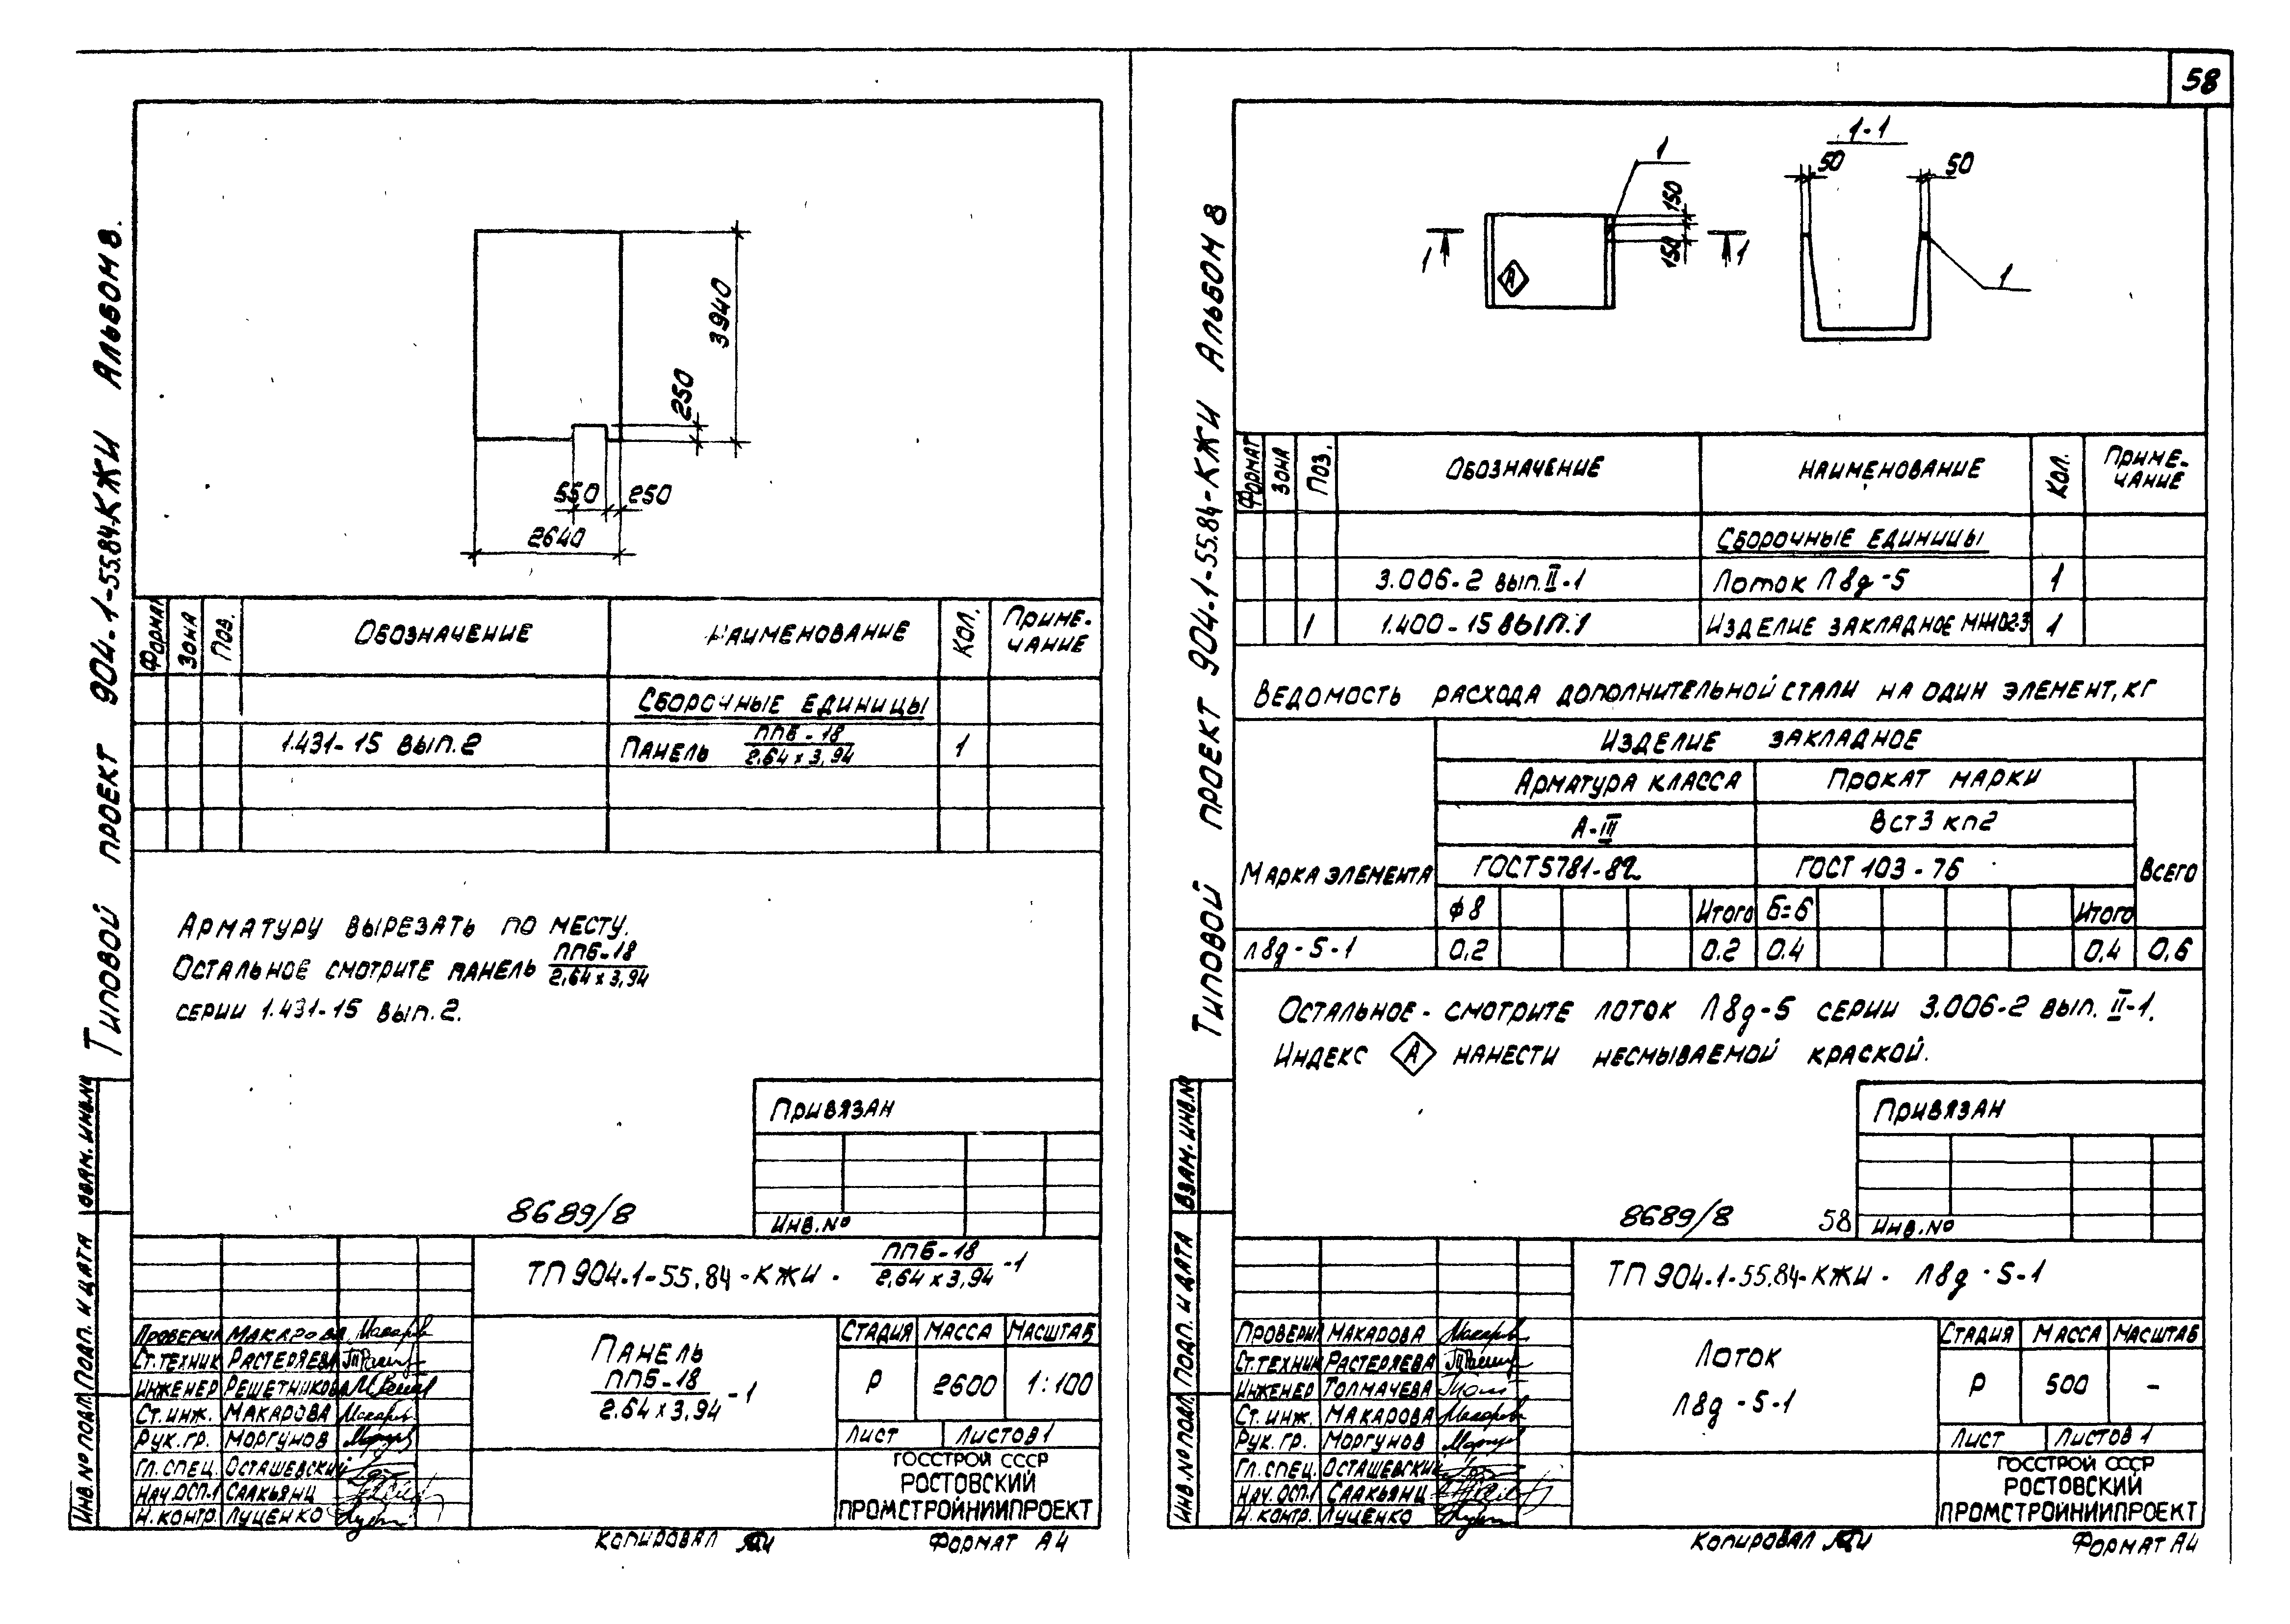 58
Типовой проект 904-1-55.84-КЖИ Альбом 8.
3940
250
550 250
2640
Формат Зона Поз. Обозначение Наименование Кол. Приме-
чание
Сборочные единицы
1.431-15 вып.2 Панель ПП6-18 1
2,64х3,94
Арматуру вырезать по месту.
Остальное смотрите панель ПП6-18
2,64х3,94
серии 1.431-15 вып.2.
Привязан
8689/8 Инв.№
Инв.№ подл. Подп. и дата Взам.инв.№
ТП 904-1-55.84-КЖИ- ПП6-18 -1
2,64х3,94
Проверил Макарова
Ст.техник Растеряева
Инженер Решетникова
Ст.инж. Макарова
Рук.гр. Моргунов
Гл.спец. Осташевский
Нач.ОСП-1 Саакьянц
Н.контр. Луценко
Панель
ПП6-18 -1
2,64х3,94
Стадия Масса Масштаб
Р 2600 1:100
Лист Листов 1
ГОССТРОЙ СССР
РОСТОВСКИЙ
ПРОМСТРОЙНИИПРОЕКТ
Копировал Формат А4
Типовой проект 904-1-55.84-КЖИ Альбом 8
1-1
50 50
1
150
150
1 1
А
1
Формат Зона Поз. Обозначение Наименование Кол. Приме-
чание
Сборочные единицы
3.006-2 вып.II-1 Лоток Л8д-5 1
1 1.400-15 вып.1 Изделие закладное МН102-3 1
Ведомость расхода дополнительной стали на один элемент, кг
Изделие закладное
Арматура класса Прокат марки
А-III Вст3 кп2
Марка элемента ГОСТ 5781-82 ГОСТ 103-76 Всего
ф8 Итого б=6 Итого
Л8д-5-1 0,2 0.2 0.4 0,4 0,6
Остальное - смотрите лоток Л8д-5 серии 3.006-2 вып. II-1.
Индекс А нанести несмываемой краской.
Привязан
8689/8 58 Инв.№
Инв.№ подл. Подп. и дата Взам.инв.№
ТП 904-1-55.84-КЖИ- Л8д-5-1
Проверил Макарова
Ст.техник Растеряева
Инженер Толмачева
Ст.инж. Макарова
Рук.гр. Моргунов
Гл.спец. Осташевский
Нач.ОСП-1 Саакьянц
Н.контр. Луценко
Лоток
Л8д-5-1
Стадия Масса Масштаб
Р 500 -
Лист Листов 1
ГОССТРОЙ СССР
РОСТОВСКИЙ
ПРОМСТРОЙНИИПРОЕКТ
Копировал Формат А4